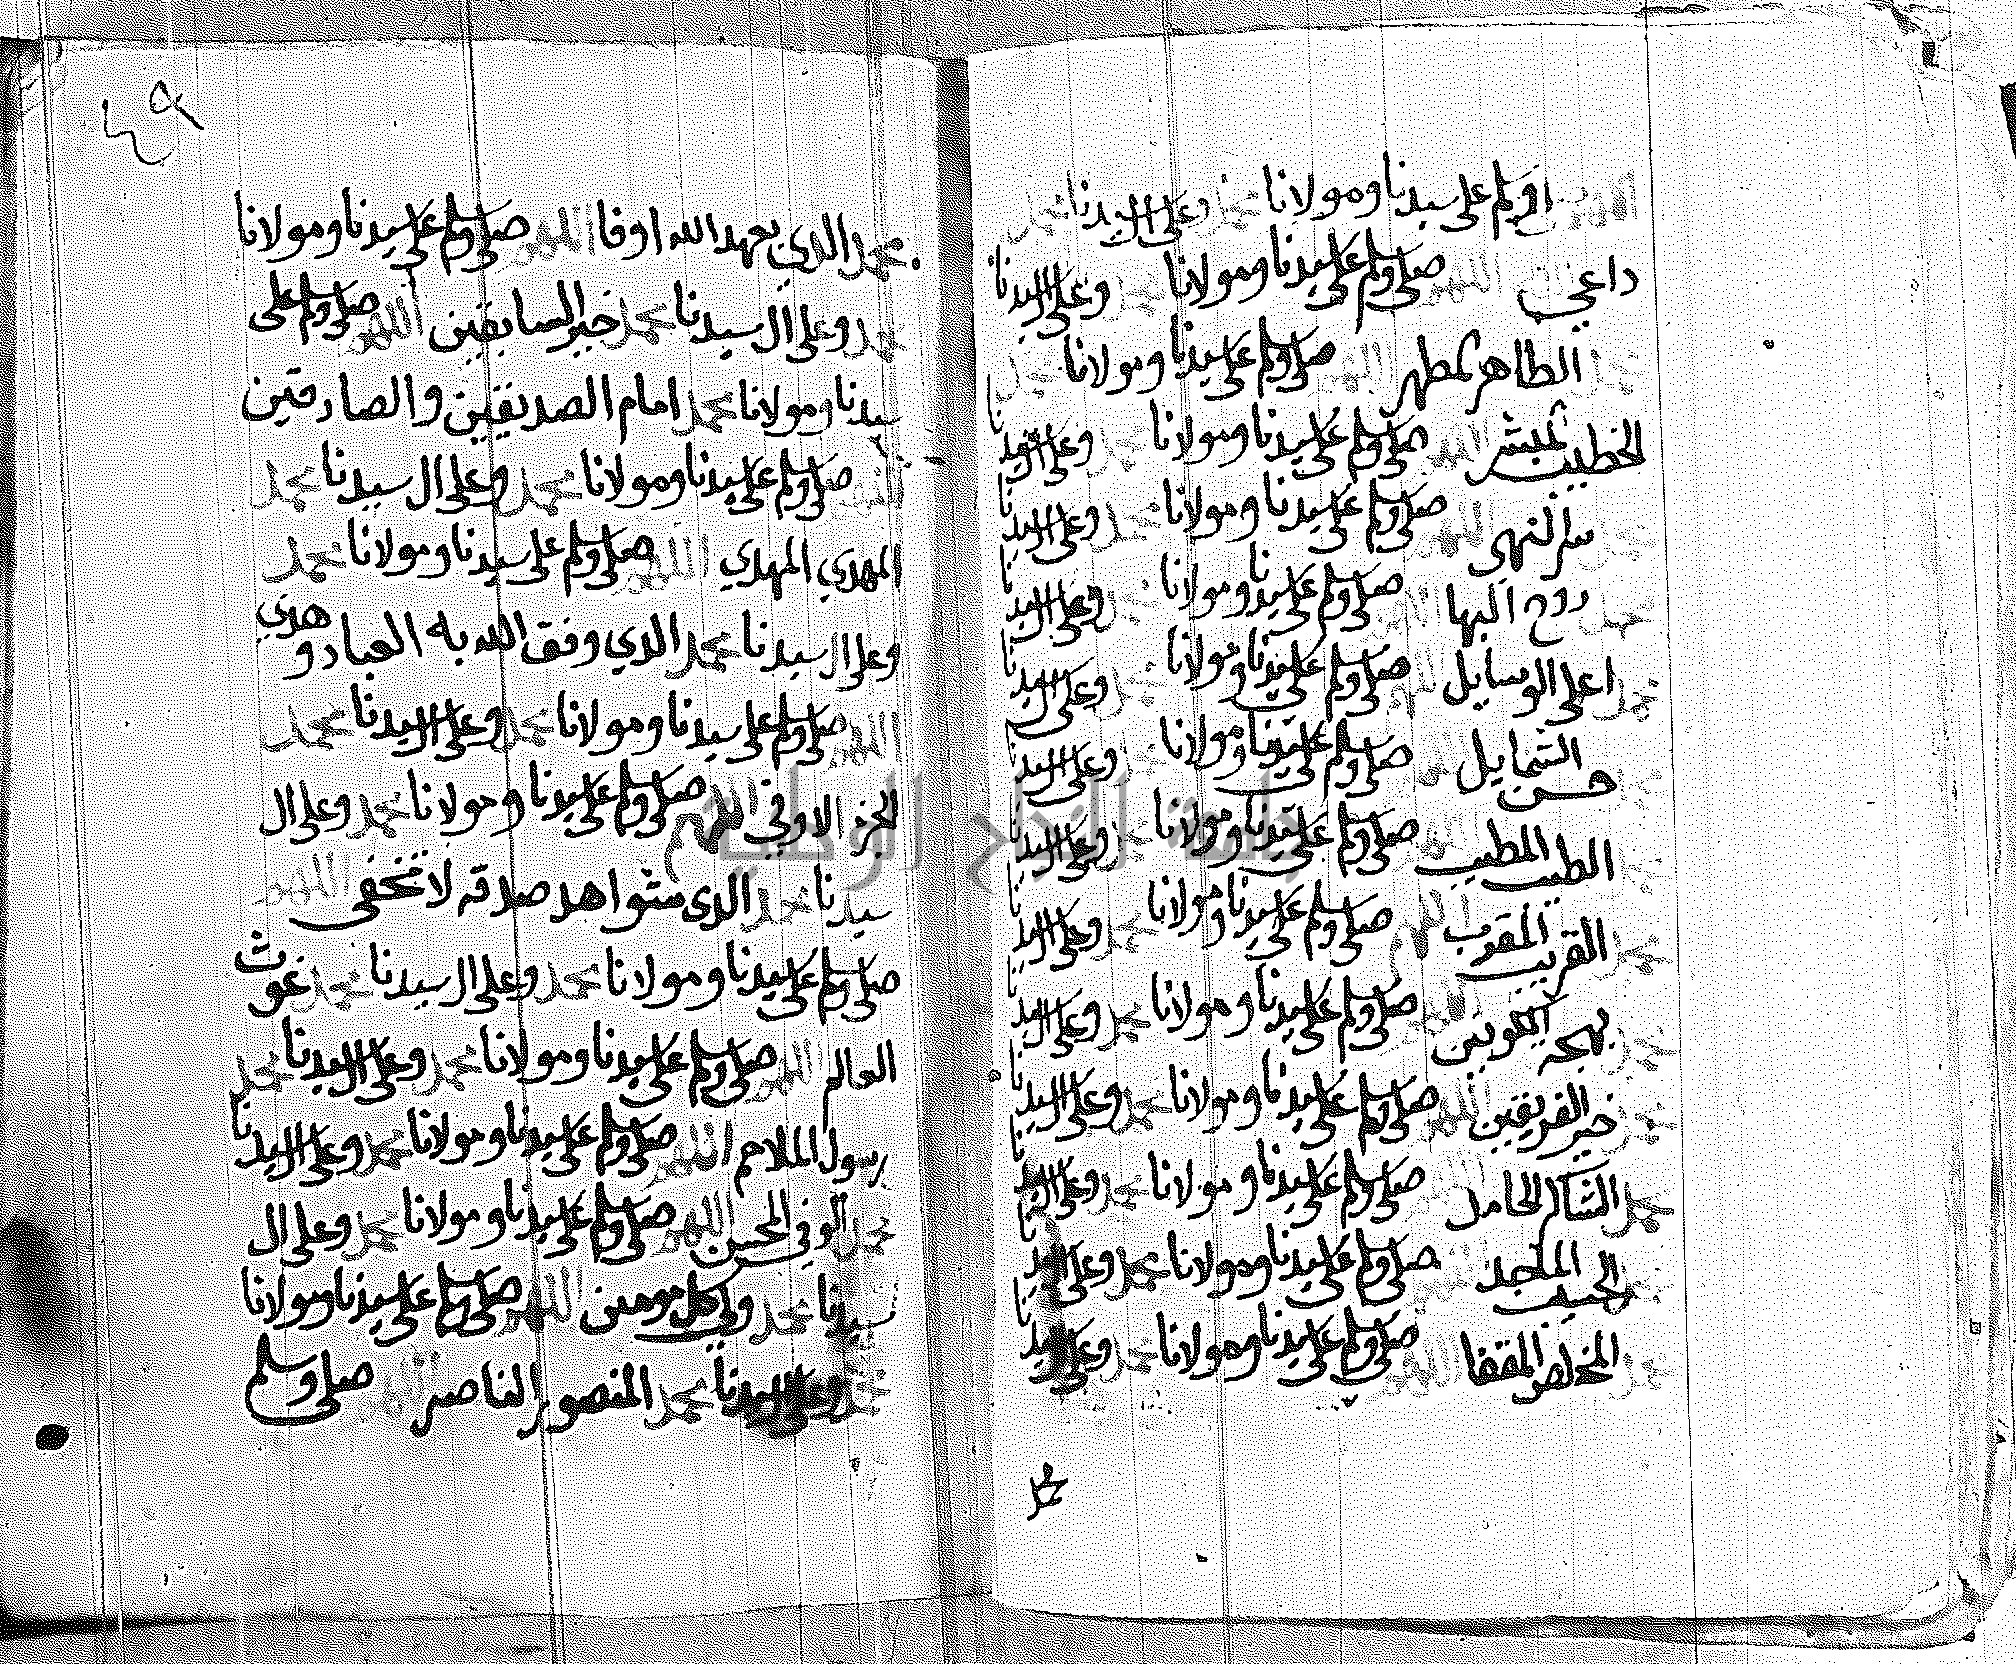 اللهم صل وسلم على سيدنا ومولانا محمد وعلى ال سيدنا محمد
داعي اللهم صل وسلم على سيدنا ومولانا محمد وعلى ال سيدنا
محمد الطاهر المطهر اللهم صل وسلم على سيدنا ومولانا محمد
الخطيب المبشر اللهم صل وسلم على سيدنا ومولانا محمد وعلى ال سيدنا
محمد سر النهى اللهم صل وسلم على سيدنا ومولانا محمد وعلى ال سيدنا
محمد روح البها اللهم صل وسلم على سيدنا ومولانا محمد وعلى ال سيدنا
محمد اعلى الوسايل اللهم صل وسلم على سيدنا ومولانا محمد وعلى ال سيدنا
محمد حسن الشمايل اللهم صل وسلم على سيدنا ومولانا محمد وعلى ال سيدنا
محمد الطيب المطيب اللهم صل وسلم على سيدنا ومولانا محمد وعلى ال سيدنا
محمد القريب المقرب اللهم صل وسلم على سيدنا ومولانا محمد وعلى ال سيدنا
محمد بهجة الكونين اللهم صل وسلم على سيدنا ومولانا محمد وعلى ال سيدنا
محمد خير الفريقين اللهم صل وسلم على سيدنا ومولانا محمد وعلى ال سيدنا
محمد الشاكر الحامد صل وسلم على سيدنا ومولانا محمد وعلى ال سيدنا
محمد الحبيب الممجد صل وسلم على سيدنا ومولانا محمد وعلى ال سيدنا
محمد المخلص المقفا اللهم صل وسلم على سيدنا ومولانا محمد وعلى ال سيدنا
محمد
٤٩
محمد الذي بعهد الله اوفا اللهم صل وسلم على سيدنا ومولانا
محمد وعلى ال سيدنا محمد خير السابقين اللهم صل وسلم على
سيدنا ومولانا محمد امام الصديقين والصادقين
اللهم صل وسلم على سيدنا ومولانا محمد وعلى ال سيدنا محمد
المهدي المهدي اللهم صل وسلم على سيدنا ومولانا محمد
وعلى ال سيدنا محمد الذي وفق الله به العباد وهدي
اللهم صل وسلم على سيدنا ومولانا محمد وعلى ال سيدنا محمد
الاوفى اللهم صل وسلم على سيدنا ومولانا محمد وعلى ال
سيدنا محمد الذي شواهد صدقه لا تخفى اللهم
صل وسلم على سيدنا ومولانا محمد وعلى ال سيدنا محمد غوث
العالم اللهم صل وسلم على سيدنا ومولانا محمد وعلى ال سيدنا محمد
رسول الملاحم اللهم صل وسلم على سيدنا ومولانا محمد وعلى ال سيدنا
محمد الوفي المحسن اللهم صل وسلم على سيدنا ومولانا محمد وعلى ال
سيدنا محمد ولي كل مومن اللهم صل وسلم على سيدنا ومولانا
محمد وعلى ال سيدنا محمد المنصور الناصر اللهم صل وسلم